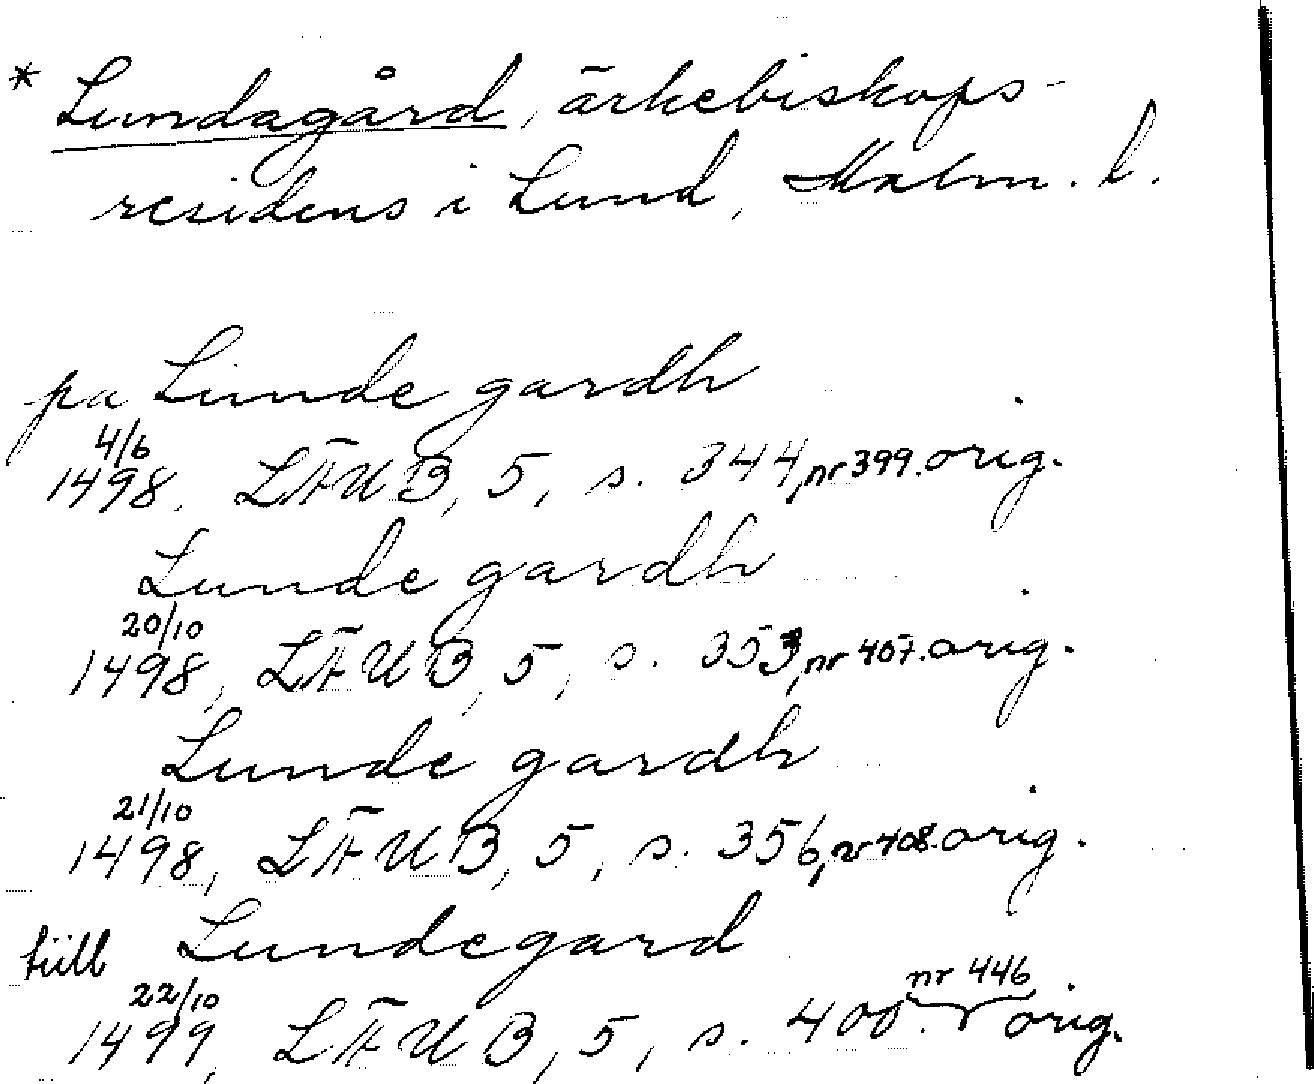 * Lundagård, ärkebiskops-
residens i Lund, Malm. l.
pa Lunde gardh
4/6
1498, LÄUB, 5, s. 344, nr 399. orig.
Lunde gardh
20/10
1498, LÄUB, 5, s. 353, nr 407. orig.
Lunde gardh
21/10
1498, LÄUB, 5, s. 356, nr 408. orig.
tiill Lundegard
22/10 nr 446
1499, LÄUB, 5, s. 400. orig.